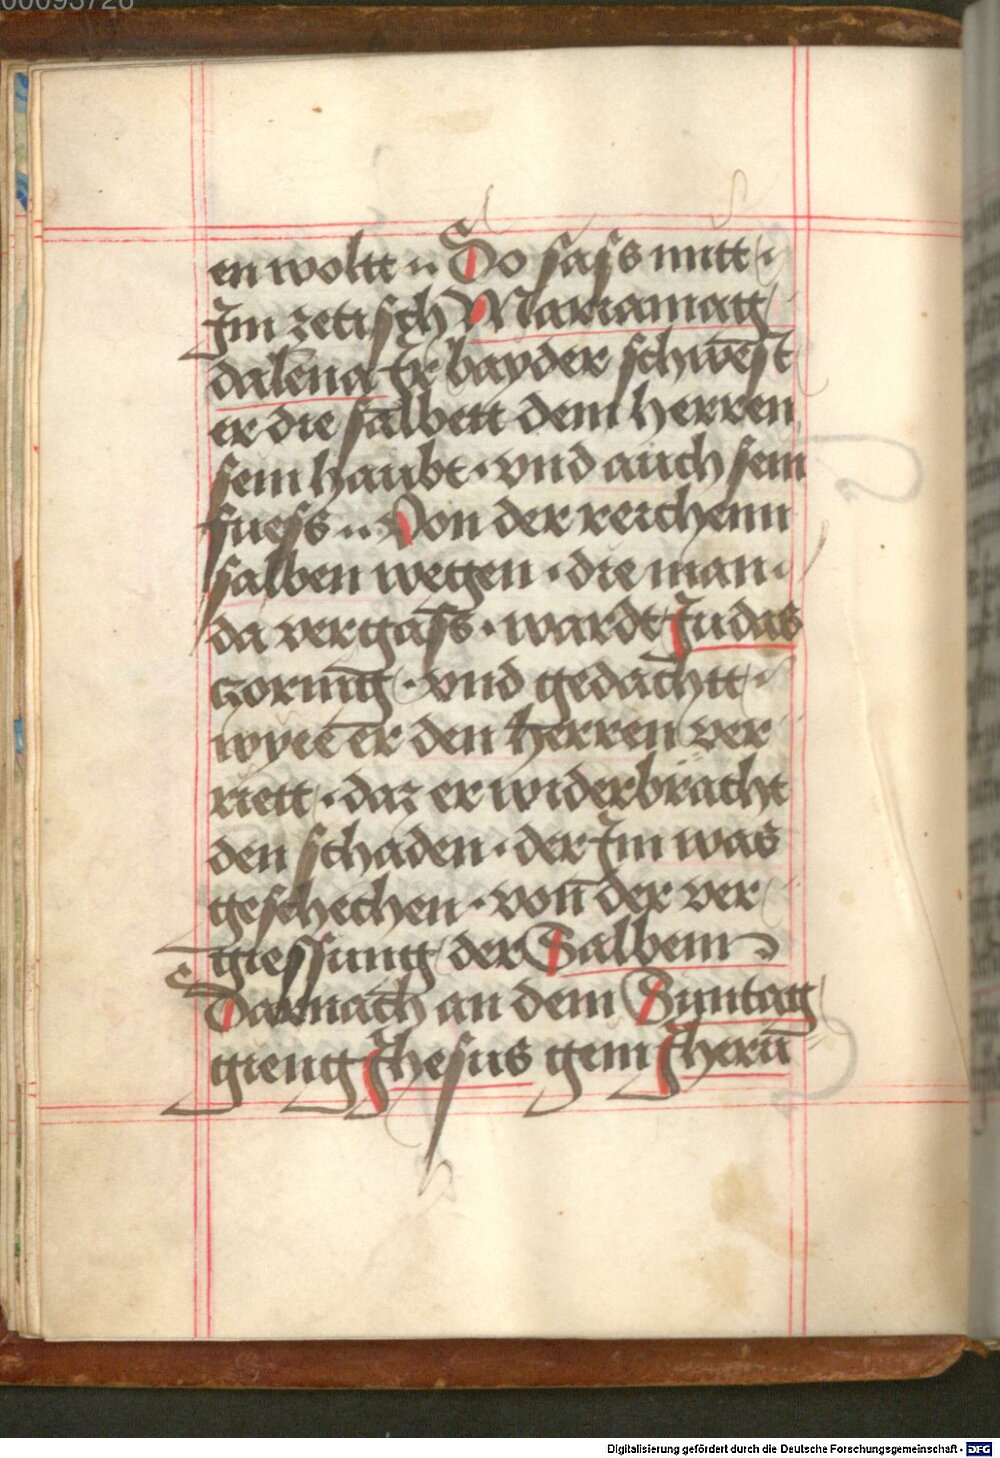 00095726
en woltt ·· Do sass mitt ·
Im ze tisch Mariamag
dalena Ir bayder schwest
er die salbett dem herren
sein haubt · vnd auch sein
fuess ·· Von der reichenn
salben wegen · die man ·
da vergass · wardt Judas
zornig · vnd gedachtt ·
wyee er den herren ver
riett · daz er widerbracht
den schaden · der Im was
geschechen · von der ver
giessung der Salbem
Darnach an dem Suntag
gieng Jhesus gem Jherū
Digitalisierung gefördert durch die Deutsche Forschungsgemeinschaft - DFG